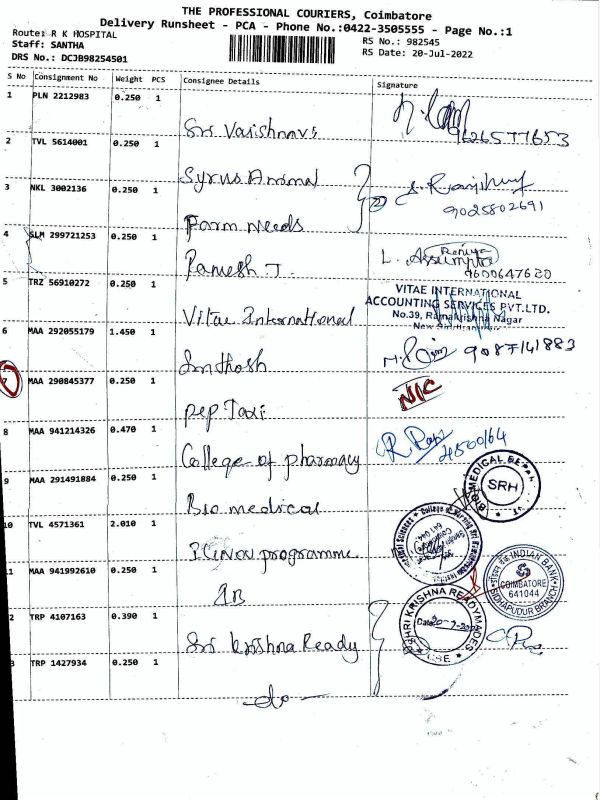 THE PROFESSIONAL COURIERS, Coimbatore
Delivery Runsheet - PCA - Phone No.:0422-3505555 - Page No.:1
Route: R K HOSPITAL
Staff: SANTHA
DRS No.: DCJB98254501
RS No.: 982545
RS Date: 20-Jul-2022
S No Consignment No Weight PCS Consignee Details Signature
1 PLN 2212983 0.250 1
Sri Vaishnavs 9626577653
2 TVL 5614001 0.250 1
Syrus Animal
3 NKL 3002136 0.250 1
9025802691
Farm needs
4 SLM 299721253 0.250 1
Ramesh T. L. Assumpta
9600647620
5 TRZ 56910272 0.250 1
VITAE INTERNATIONAL
ACCOUNTING SERVICES PVT.LTD.
No.39, Ramakrishna Nagar
Vitae International
6 MAA 292055179 1.450 1
9087141883
Santhosh
7 MAA 290845377 0.250 1
N/C
pep Taxi
8 MAA 941214326 0.470 1
College of pharmacy
9 MAA 291491884 0.250 1
BIO MEDICAL
SRH
Bio medical
10 TVL 4571361 2.010 1
College of Nursing
641 044
programme
11 MAA 941992610 0.250 1
INDIAN BANK
COIMBATORE
641044
SIDHAPUDUR BRANCH
IB
2 TRP 4107163 0.390 1
SHRI KRISHNA READYMADES
Date:
CBE
Sri krishna Ready
3 TRP 1427934 0.250 1
-do-